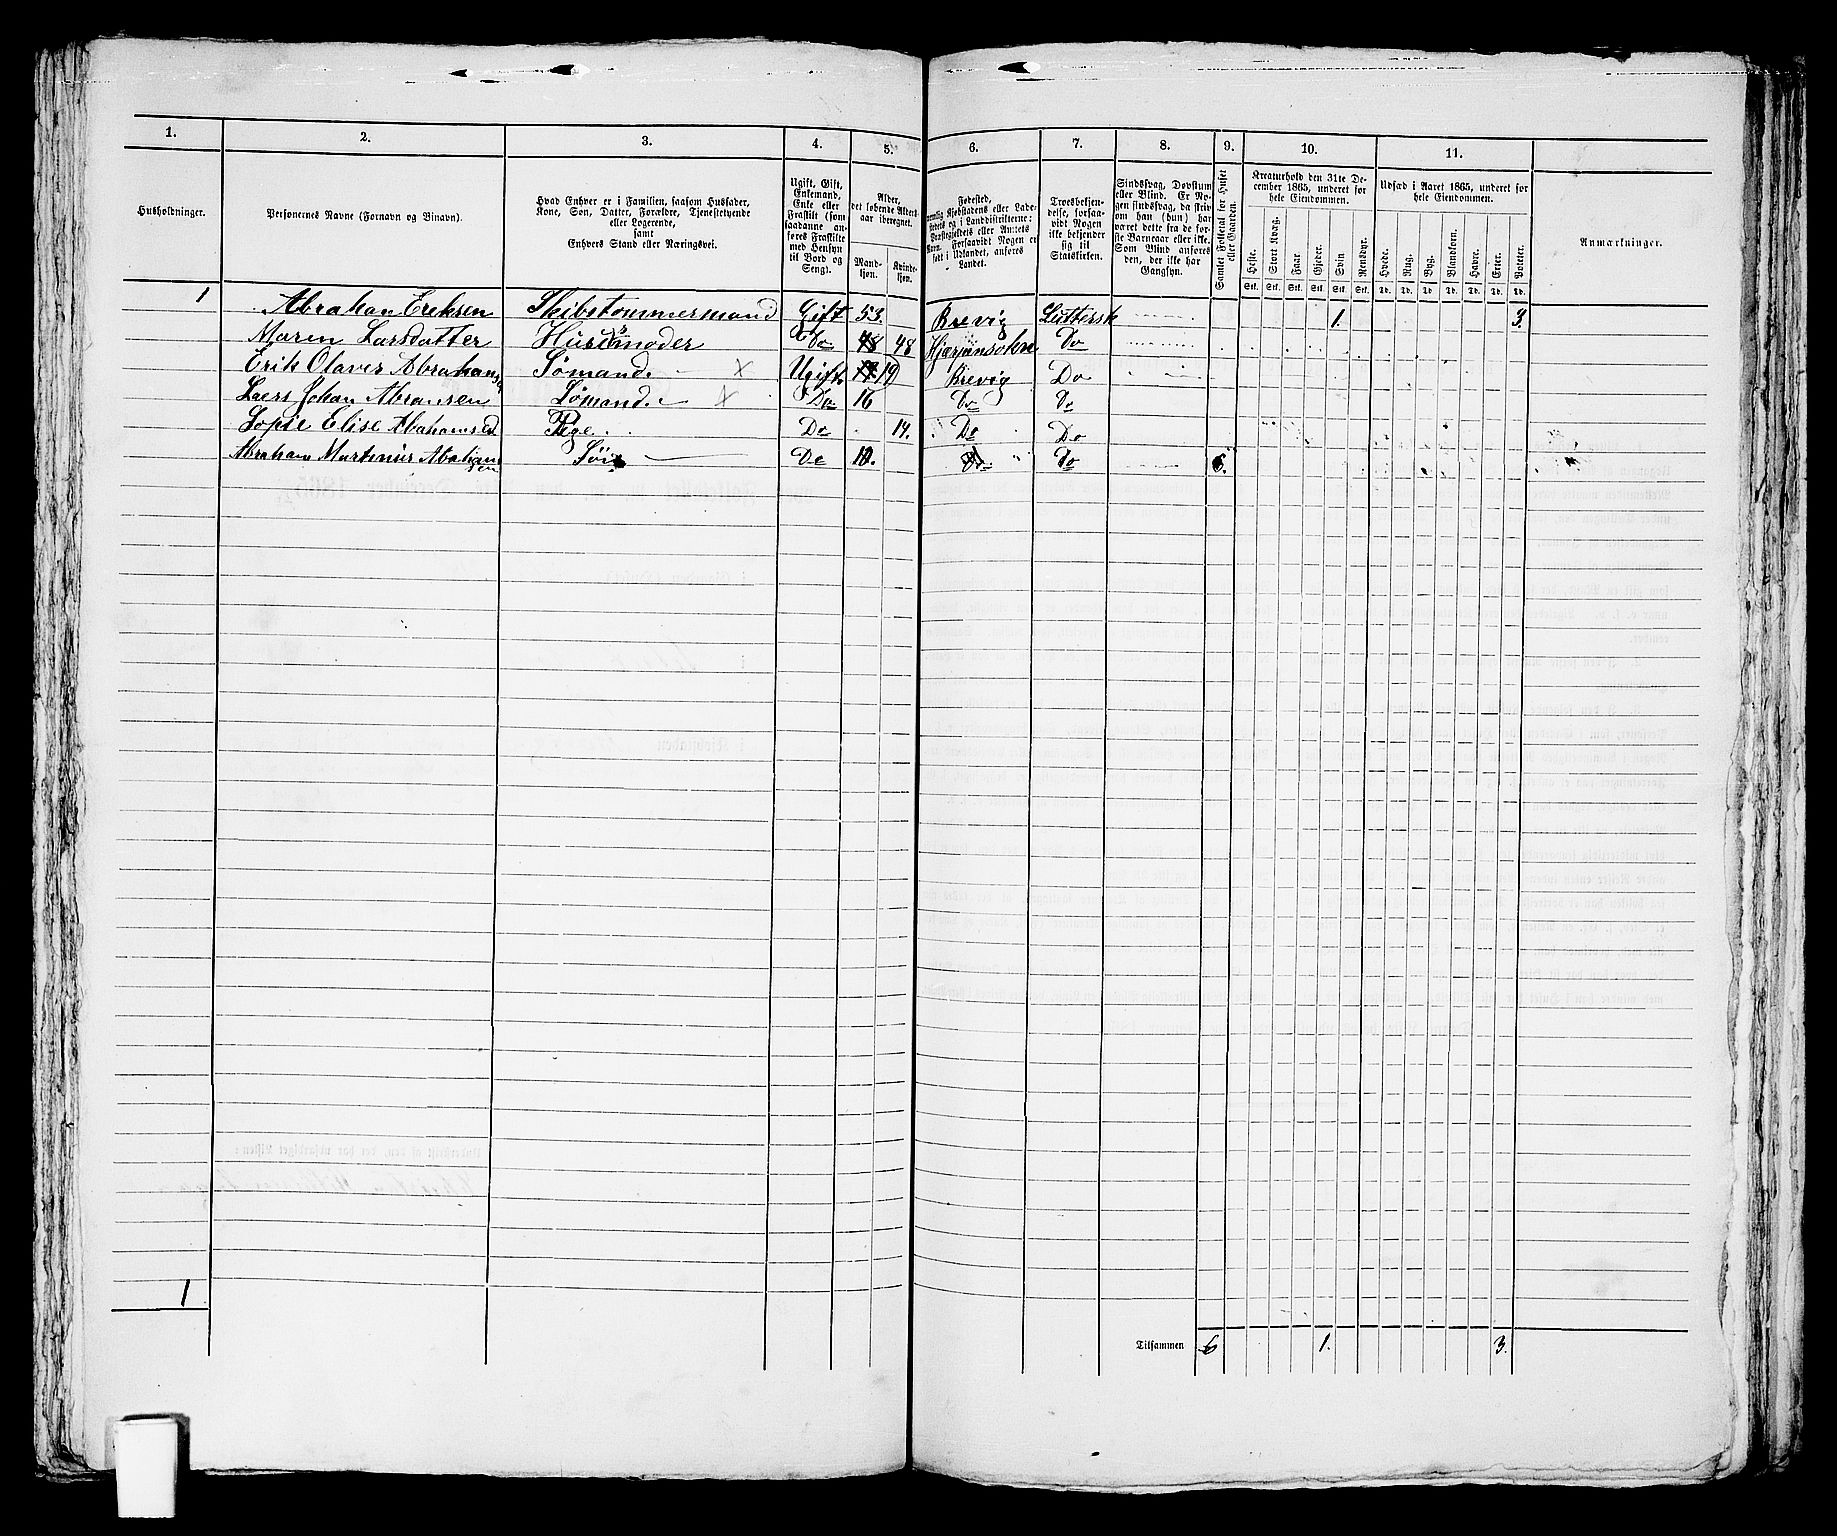 1. 2. 3. 4. 5. 6. 7. 8. 9. 10. 11.
Husholdninger.
Personernes Navne (Fornavn og Binavn).
Hvad Enhver er i Familien, saasom Husfader,
Kone, Søn, Datter, Forældre, Tjenestetyende
eller Logerende,
samt
Enhvers Stand eller Næringsvei.
Ugift, Gift,
Enkemand,
Enke eller
Fraskilt (som
saadanne an-
føres Fraskilte
med Hensyn
til Bord og
Seng).
Alder,
det løbende Alders-
aar iberegnet.
Mand-
kjøn.
Kvinde-
kjøn.
Fødested,
nemlig Kjøbstadens eller Lade-
stedets og i Landdistrikterne:
Præstegjeldets eller Amtets
Navn. Forsaavidt Nogen er
født i Udlandet, anføres
Landet.
Troesbekjen-
delse, forsaa-
vidt Nogen
ikke bekjender
sig til
Statskirken.
Sindssvag, Døvstum
eller Blind. Er No-
gen sindssvag, da skriv
om han (hun) har
været dette fra de før-
ste Barneaar eller ikke.
Som Blind anføres
den, der ikke har
Gangsyn.
Samlet Folketal for Huset
eller Gaarden.
Kreaturhold den 31te De-
cember 1865, underet for
hele Eiendommen.
Heste. Stort Kvæg. Faar. Gjeder. Svin. Rensdyr.
Stk. Stk. Stk. Stk. Stk. Stk.
Udsæd i Aaret 1865, underet for
hele Eiendommen.
Hvede. Rug. Byg. Blandkorn. Havre. Erter. Poteter.
Td. Td. Td. Td. Td. Td. Td.
Anmærkninger.
1 Abrahan Ereksen Skibstømmermand Gift 53. Brevig Luttersk 1. 3.
Maren Larsdatter Husmoder Do 48 48 Do
Erik Olaves Abrahans Sømand. × Ugift. 19 Brevig Do
Laers Johan Abransen Sømand. × Do 16 Do Do
Sopie Elise Abahamsed Pige. Do 14. Do Do
Abraham Martinius Abahamsen Søn Do 10. Do Do 6.
1
Tilsammen 6 1. 3.